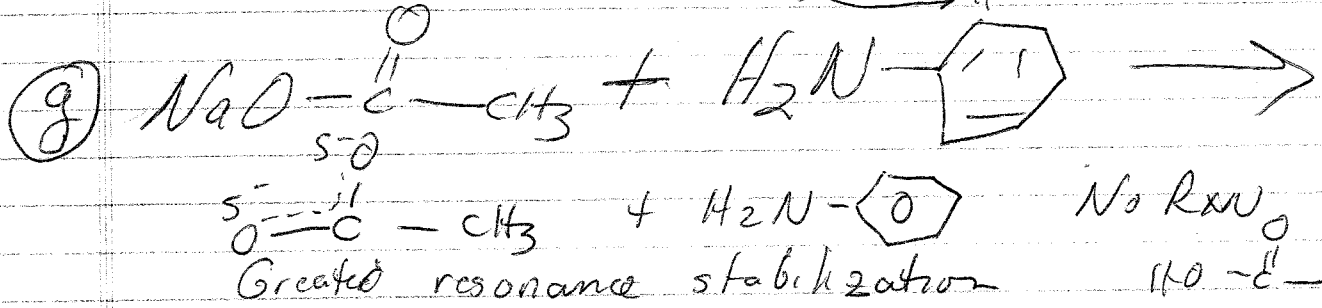 g NaO-C(=O)-CH3 + H2N- →
δ- O δ- O=C-CH3 + H2N- No RXN
Greater resonance stabilization HO-C(=O)-